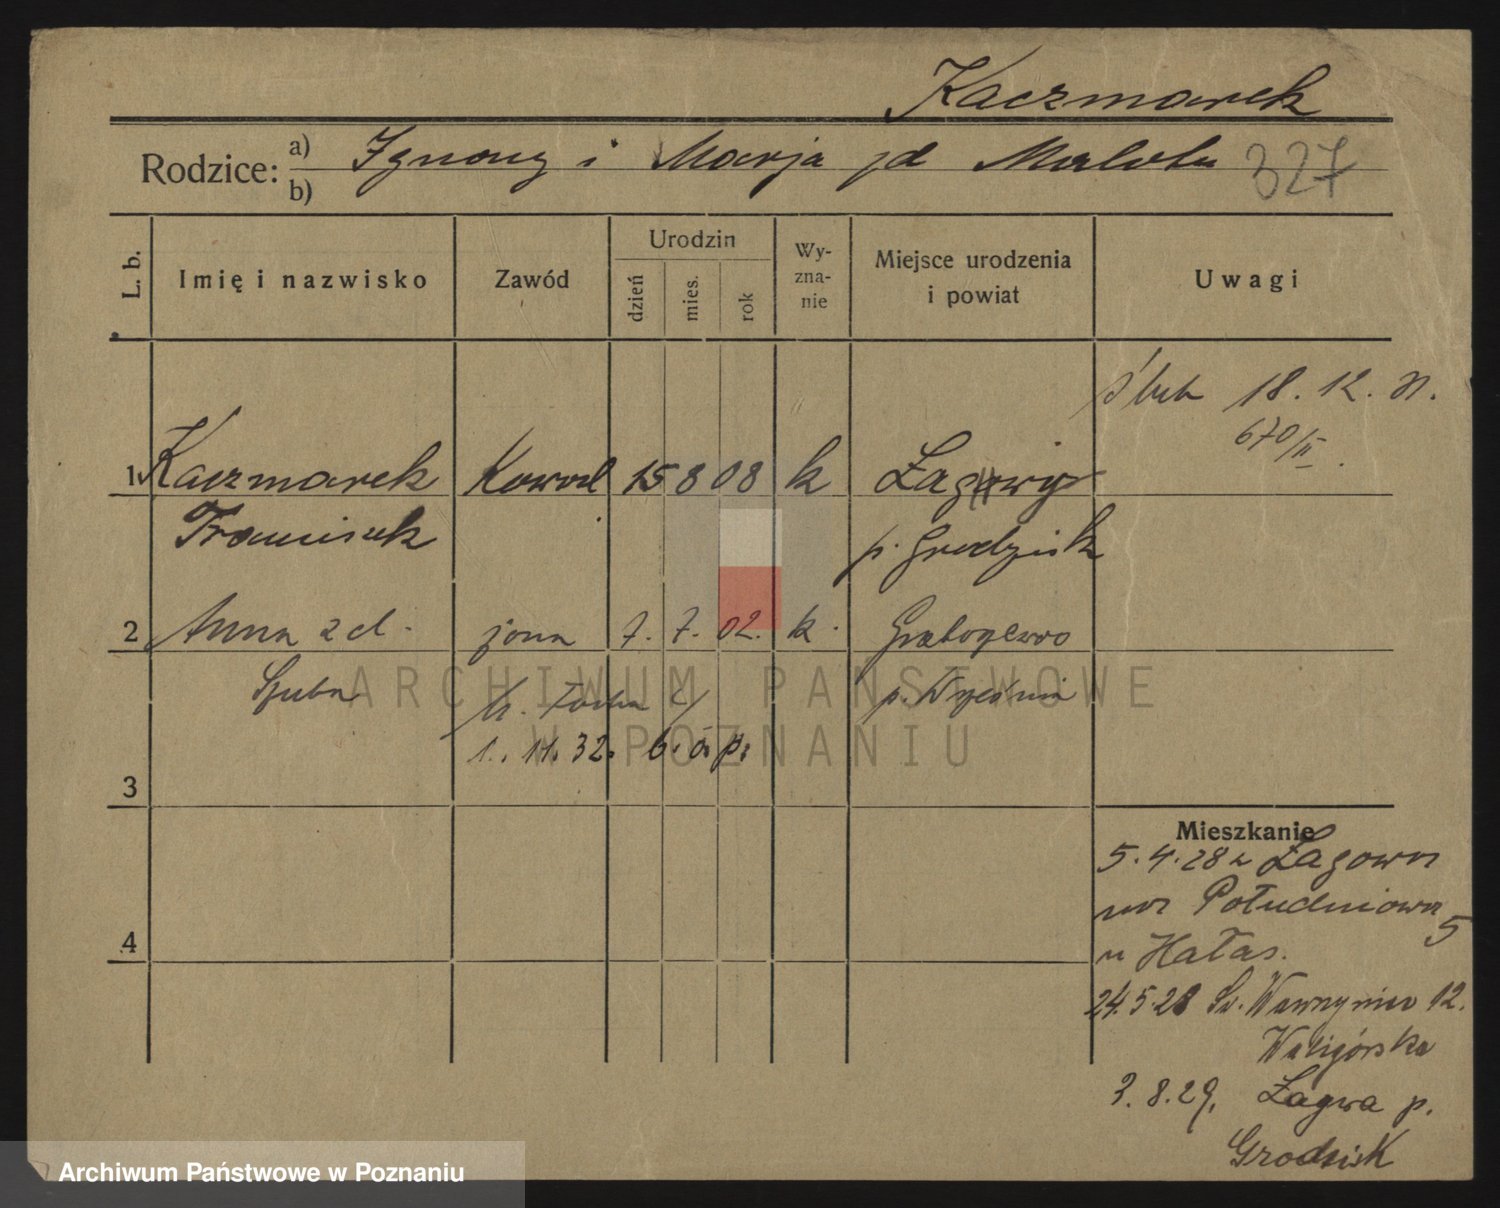 Kaczmarek
Rodzice: a) Ignacy i Marja zd Maluha 327
b)
L. b. Imię i nazwisko Zawód Urodzin dzień mies. rok Wy-zna-nie Miejsce urodzenia i powiat Uwagi
Ślub 18. 12. 31.
670/II.
1 Kaczmarek Kowal 15 8 08 k Łagwy
Franciszek p. Grodzisk
2 Anna zd. żona 7. 7. 02. k. Grabogewo
Szuba p. Września
1. 11. 32. b. o. p.
3
4
Mieszkanie
5.4.28 z Łagowa
na Południowa 5
u Hałas.
24.5.28 Św. Wawrzyniec 12.
Waligórska
3.8.29. Łagwa p.
Grodzisk
ARCHIWUM PAŃSTWOWE
W POZNANIU
Archiwum Państwowe w Poznaniu